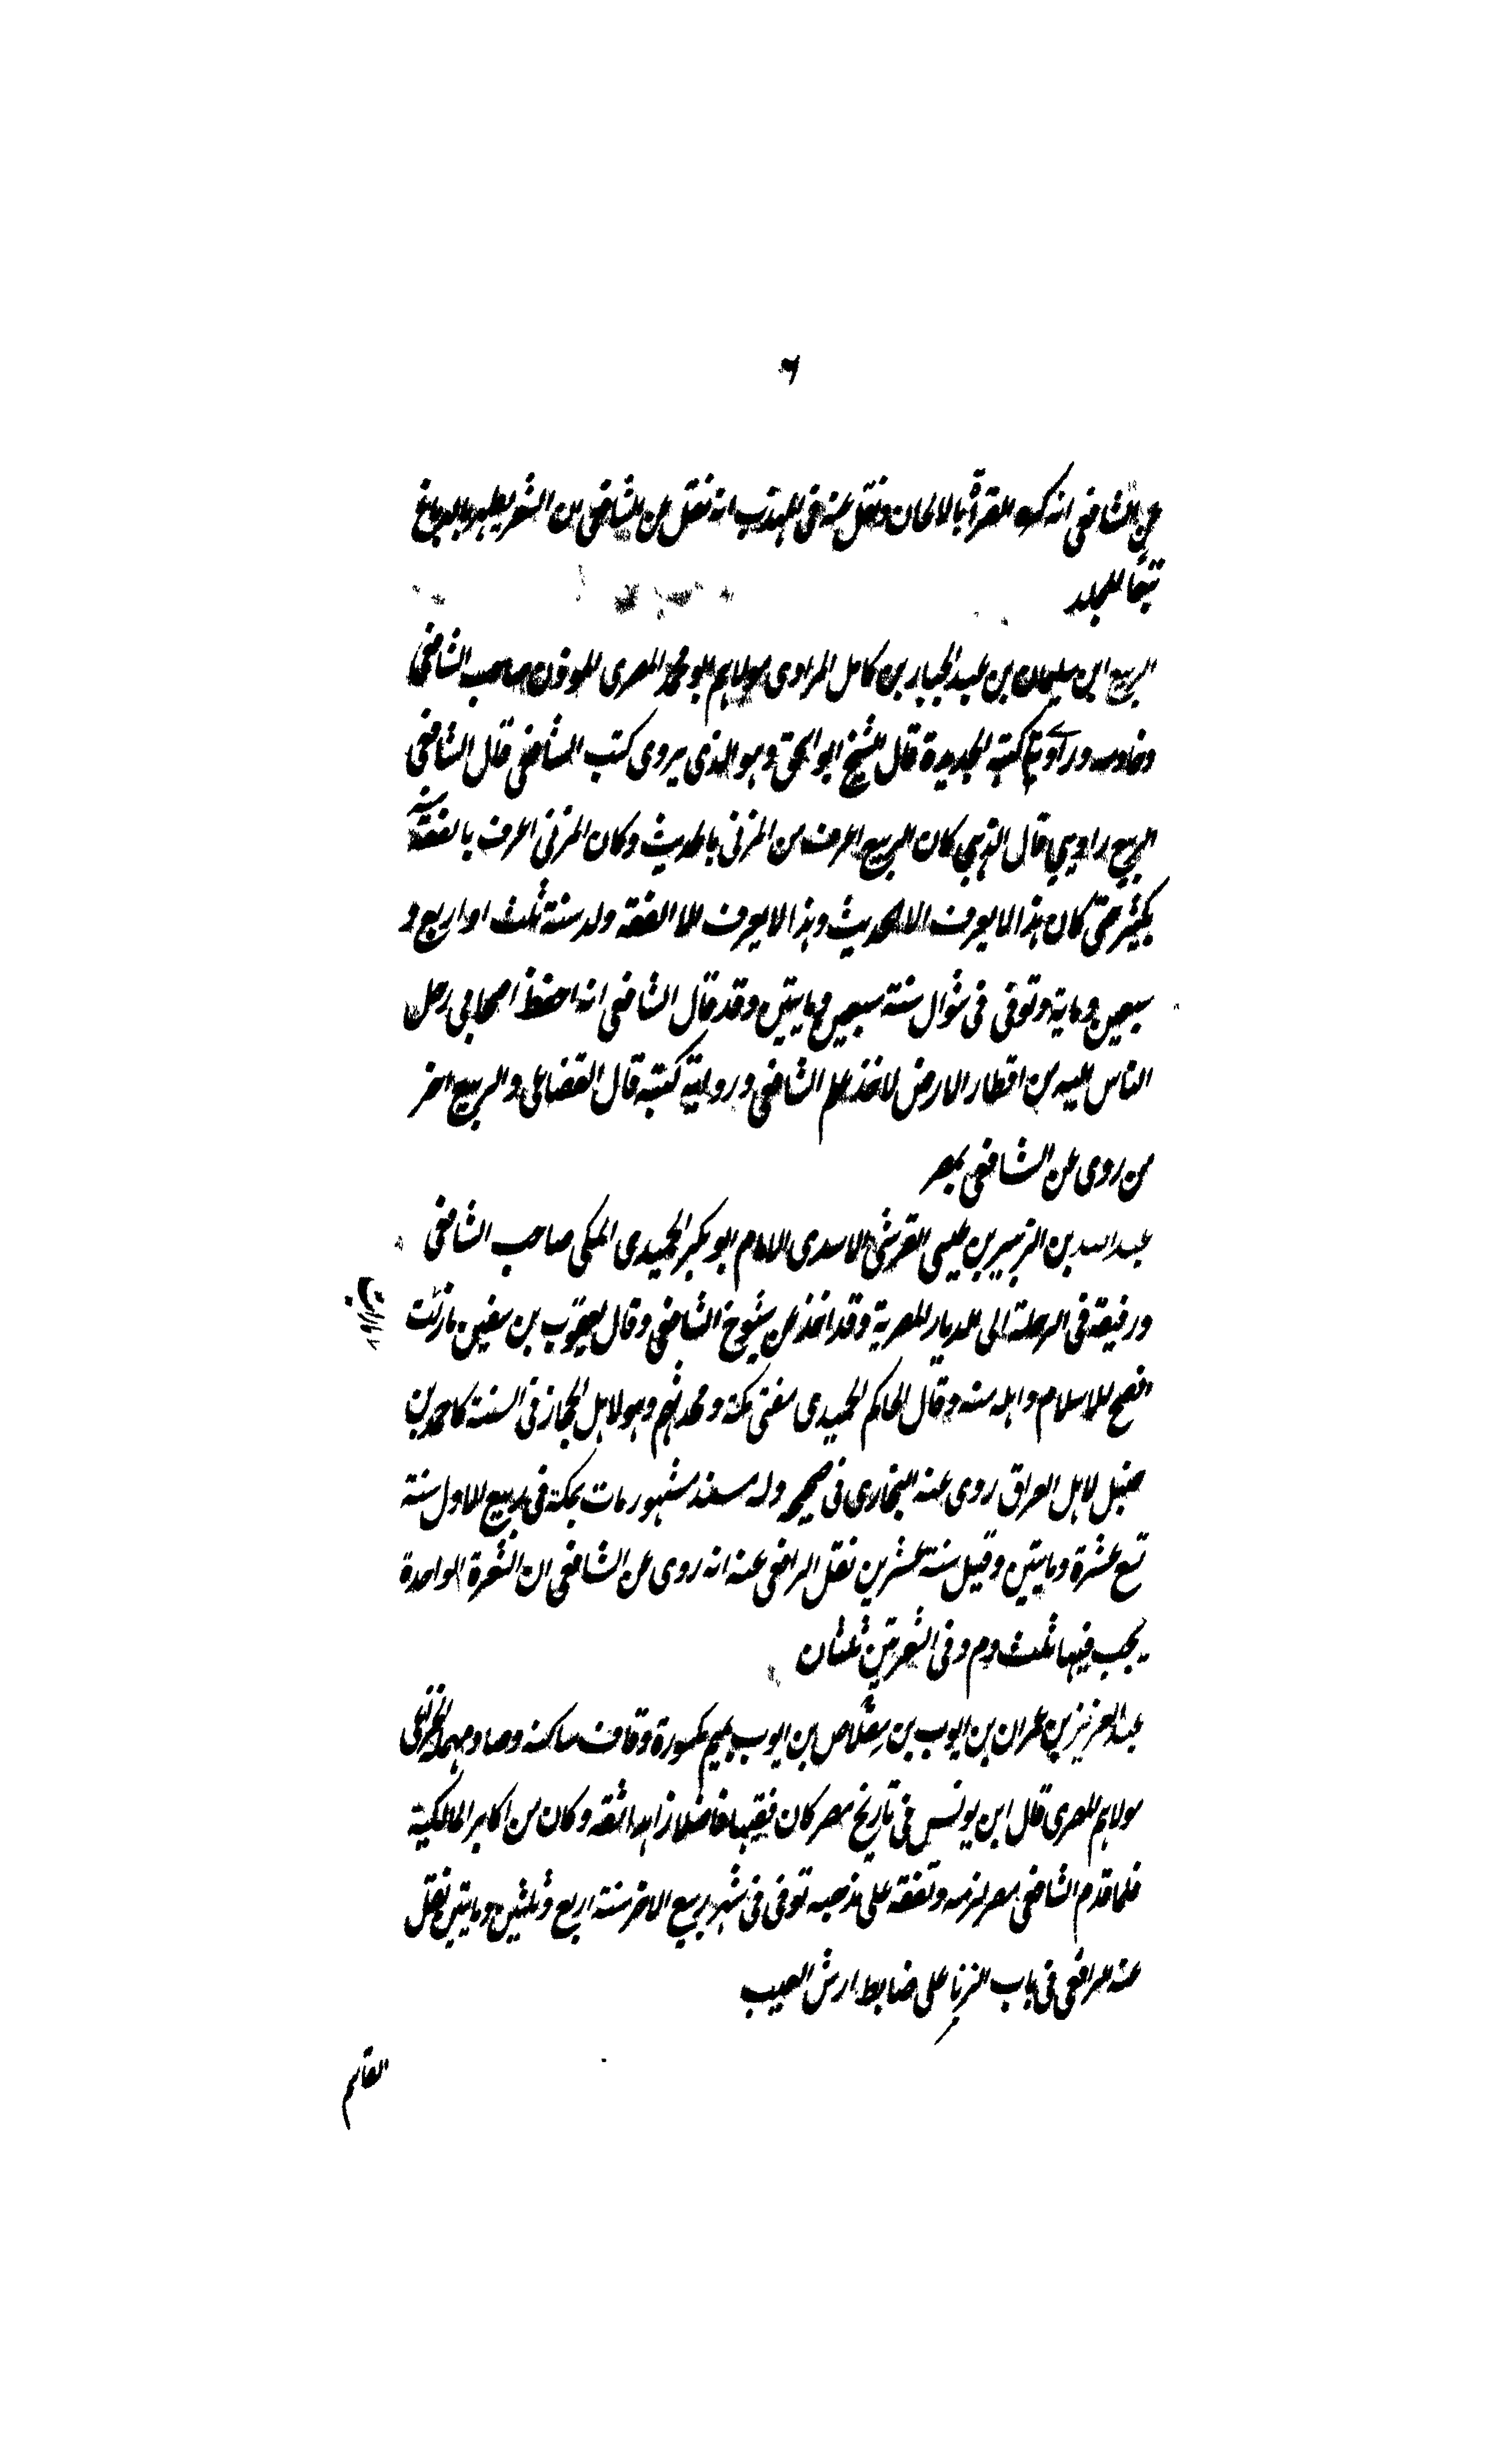 ٦
عن الشافعي انه كره القرأة بالالحان ونقل عنه في المهذب انه نقل عن الشافعي ان الشعر يطهر بالدباغ
تبعا للجلد
الربيع ابن سليمان بن عبد الجبار بن كامل المرادي مولاهم ابو محمد المصري الموذن صاحب الشافعي
وخادمه وراوية كتبه الجديدة قال الشيخ ابو اسحق وهو الذي يروى كتب الشافعي قال الشافعي
الربيع راويتي قال الذهبي كان الربيع اعرف من المزني بالحديث وكان المزني اعرف بالفقه منه
بكثير حتى كان هذا لا يعرف الا الحديث وهذا لا يعرف الا الفقه ولد سنة ثلث او اربع و
سبعين وماية وتوفى في شوال سنة سبعين ومايتين وقد قال الشافعي انه احفظ اصحابي رحل
الناس اليه من اقطار الارض لاخذ علم الشافعي ورواية كتبه قال القضاعي والربيع اخر
من روى عن الشافعي بمصر
عبد الله بن الزبير بن عيسى القرشي الاسدي الامام ابو بكر الحميدي المكي صاحب الشافعي
ورفيقه في الرحلة الى الديار المصرية وقد اخذ عن شيوخ الشافعي وقال يعقوب بن سفين ما رئت
انصح للاسلام واهله منه وقال الحاكم الحميدي مفتى مكة ومحدثهم وهو لاهل الحجاز في السنة كاحمد بن
حنبل لاهل العراق روى عنه البخاري في صحيحه وله مسند مشهور مات بمكة في ربيع الاول سنة
تسع عشرة ومايتين وقيل سنة عشرين نقل الرافعي عنه انه روى عن الشافعي ان الشعرة الواحدة
يجب فيها ثلث دم وفي الشعرتين ثلثان
عبد العزيز بن عمران بن ايوب بن مقلاص بن ايوب بميم مكسورة وقاف ساكنة وصاد مهملة الخزاعي
مولاهم المصري قال ابن يونس في تاريخ مصر كان فقيها فاضلا زاهدا ثقه وكان من اكابر المالكية
فلما قدم الشافعي مصر لزمه وتفقه على مذهبه توفى في شهر ربيع الاخر سنة اربع وثلثين ومايتين نقل
عنه الرافعي في باب الزنا على ضابط ارش العيب
القاسم